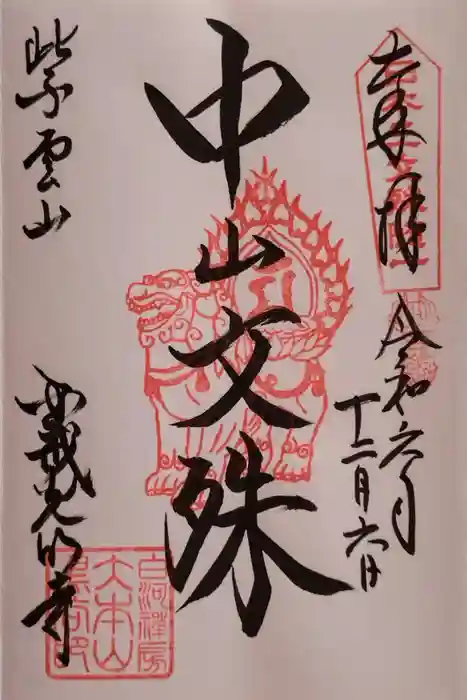 奉拝
令和六年
十二月六日
中山文殊
紫雲山
金戒光明寺
白河禅房
大本山